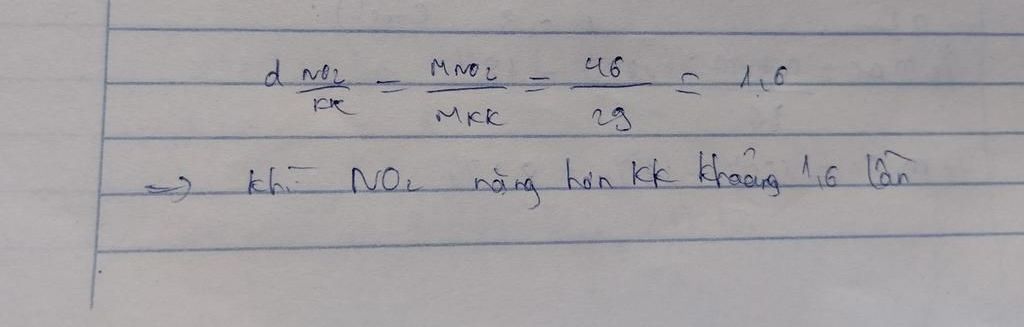 d NO₂/KK = MNO₂/MKK = 46/29 = 1,6
=> khí NO₂ nặng hơn KK khoảng 1,6 lần